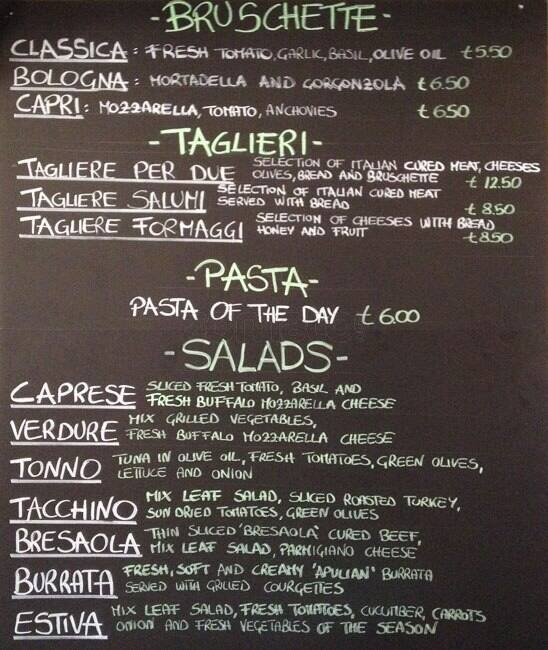 -BRUSCHETTE-
CLASSICA : FRESH TOMATO, GARLIC, BASIL, OLIVE OIL £5.50
BOLOGNA : MORTADELLA AND GORGONZOLA £6.50
CAPRI : MOZZARELLA, TOMATO, ANCHOVIES £6.50
-TAGLIERI-
TAGLIERE PER DUE SELECTION OF ITALIAN CURED MEAT, CHEESES
OLIVES, BREAD AND BRUSCHETTE £12.50
TAGLIERE SALUMI SELECTION OF ITALIAN CURED MEAT
SERVED WITH BREAD £8.50
TAGLIERE FORMAGGI SELECTION OF CHEESES WITH BREAD
HONEY AND FRUIT £8.50
-PASTA-
PASTA OF THE DAY £6.00
-SALADS-
CAPRESE SLICED FRESH TOMATO, BASIL AND
FRESH BUFFALO MOZZARELLA CHEESE
VERDURE MIX GRILLED VEGETABLES,
FRESH BUFFALO MOZZARELLA CHEESE
TONNO TUNA IN OLIVE OIL, FRESH TOMATOES, GREEN OLIVES,
LETTUCE AND ONION
TACCHINO MIX LEAF SALAD, SLICED ROASTED TURKEY,
SUN DRIED TOMATOES, GREEN OLIVES
BRESAOLA THIN SLICED 'BRESAOLA' CURED BEEF,
MIX LEAF SALAD, PARMIGIANO CHEESE
BURRATA FRESH, SOFT AND CREAMY 'APULIAN' BURRATA
SERVED WITH GRILLED COURGETTES
ESTIVA MIX LEAF SALAD, FRESH TOMATOES, CUCUMBER, CARROTS
ONION AND FRESH VEGETABLES OF THE SEASON